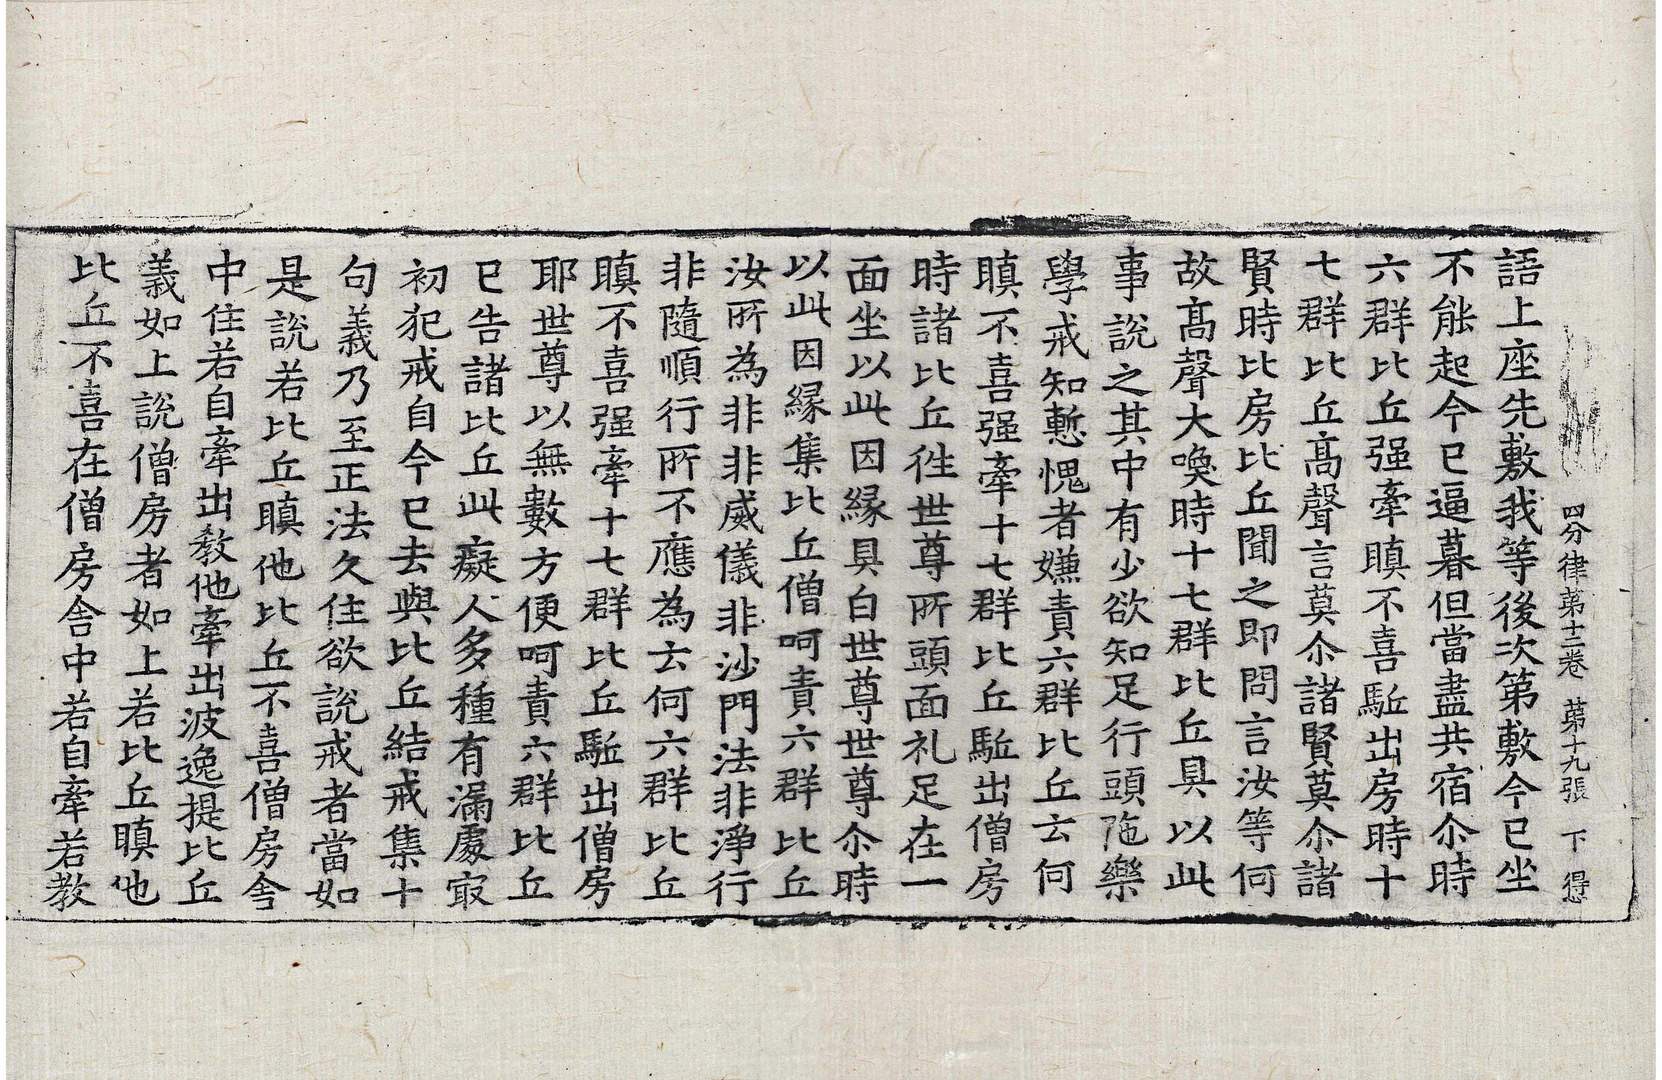 四分律第十二卷 第十九張 下 得
語上座先敷我等後次第敷今已坐
不能起今已逼暮但當盡共宿尒時
六群比丘强牽瞋不喜駈出房時十
七群比丘髙聲言莫尒諸賢莫尒諸
賢時比房比丘聞之即問言汝等何
故髙聲大喚時十七群比丘具以此
事說之其中有少欲知足行頭陁樂
學戒知慙愧者嫌責六群比丘云何
瞋不喜强牽十七群比丘駈出僧房
時諸比丘徃世尊所頭面礼足在一
面坐以此因緣具白世尊世尊尒時
以此因緣集比丘僧呵責六群比丘
汝所為非非威儀非沙門法非淨行
非隨順行所不應為云何六群比丘
瞋不喜强牽十七群比丘駈出僧房
耶世尊以無數方便呵責六群比丘
已告諸比丘此癡人多種有漏處㝡
初犯戒自今已去與比丘結戒集十
句義乃至正法久住欲說戒者當如
是說若比丘瞋他比丘不喜僧房舍
中住若自牽出教他牽出波逸提比丘
義如上說僧房者如上若比丘瞋他
比丘不喜在僧房舍中若自牽若教